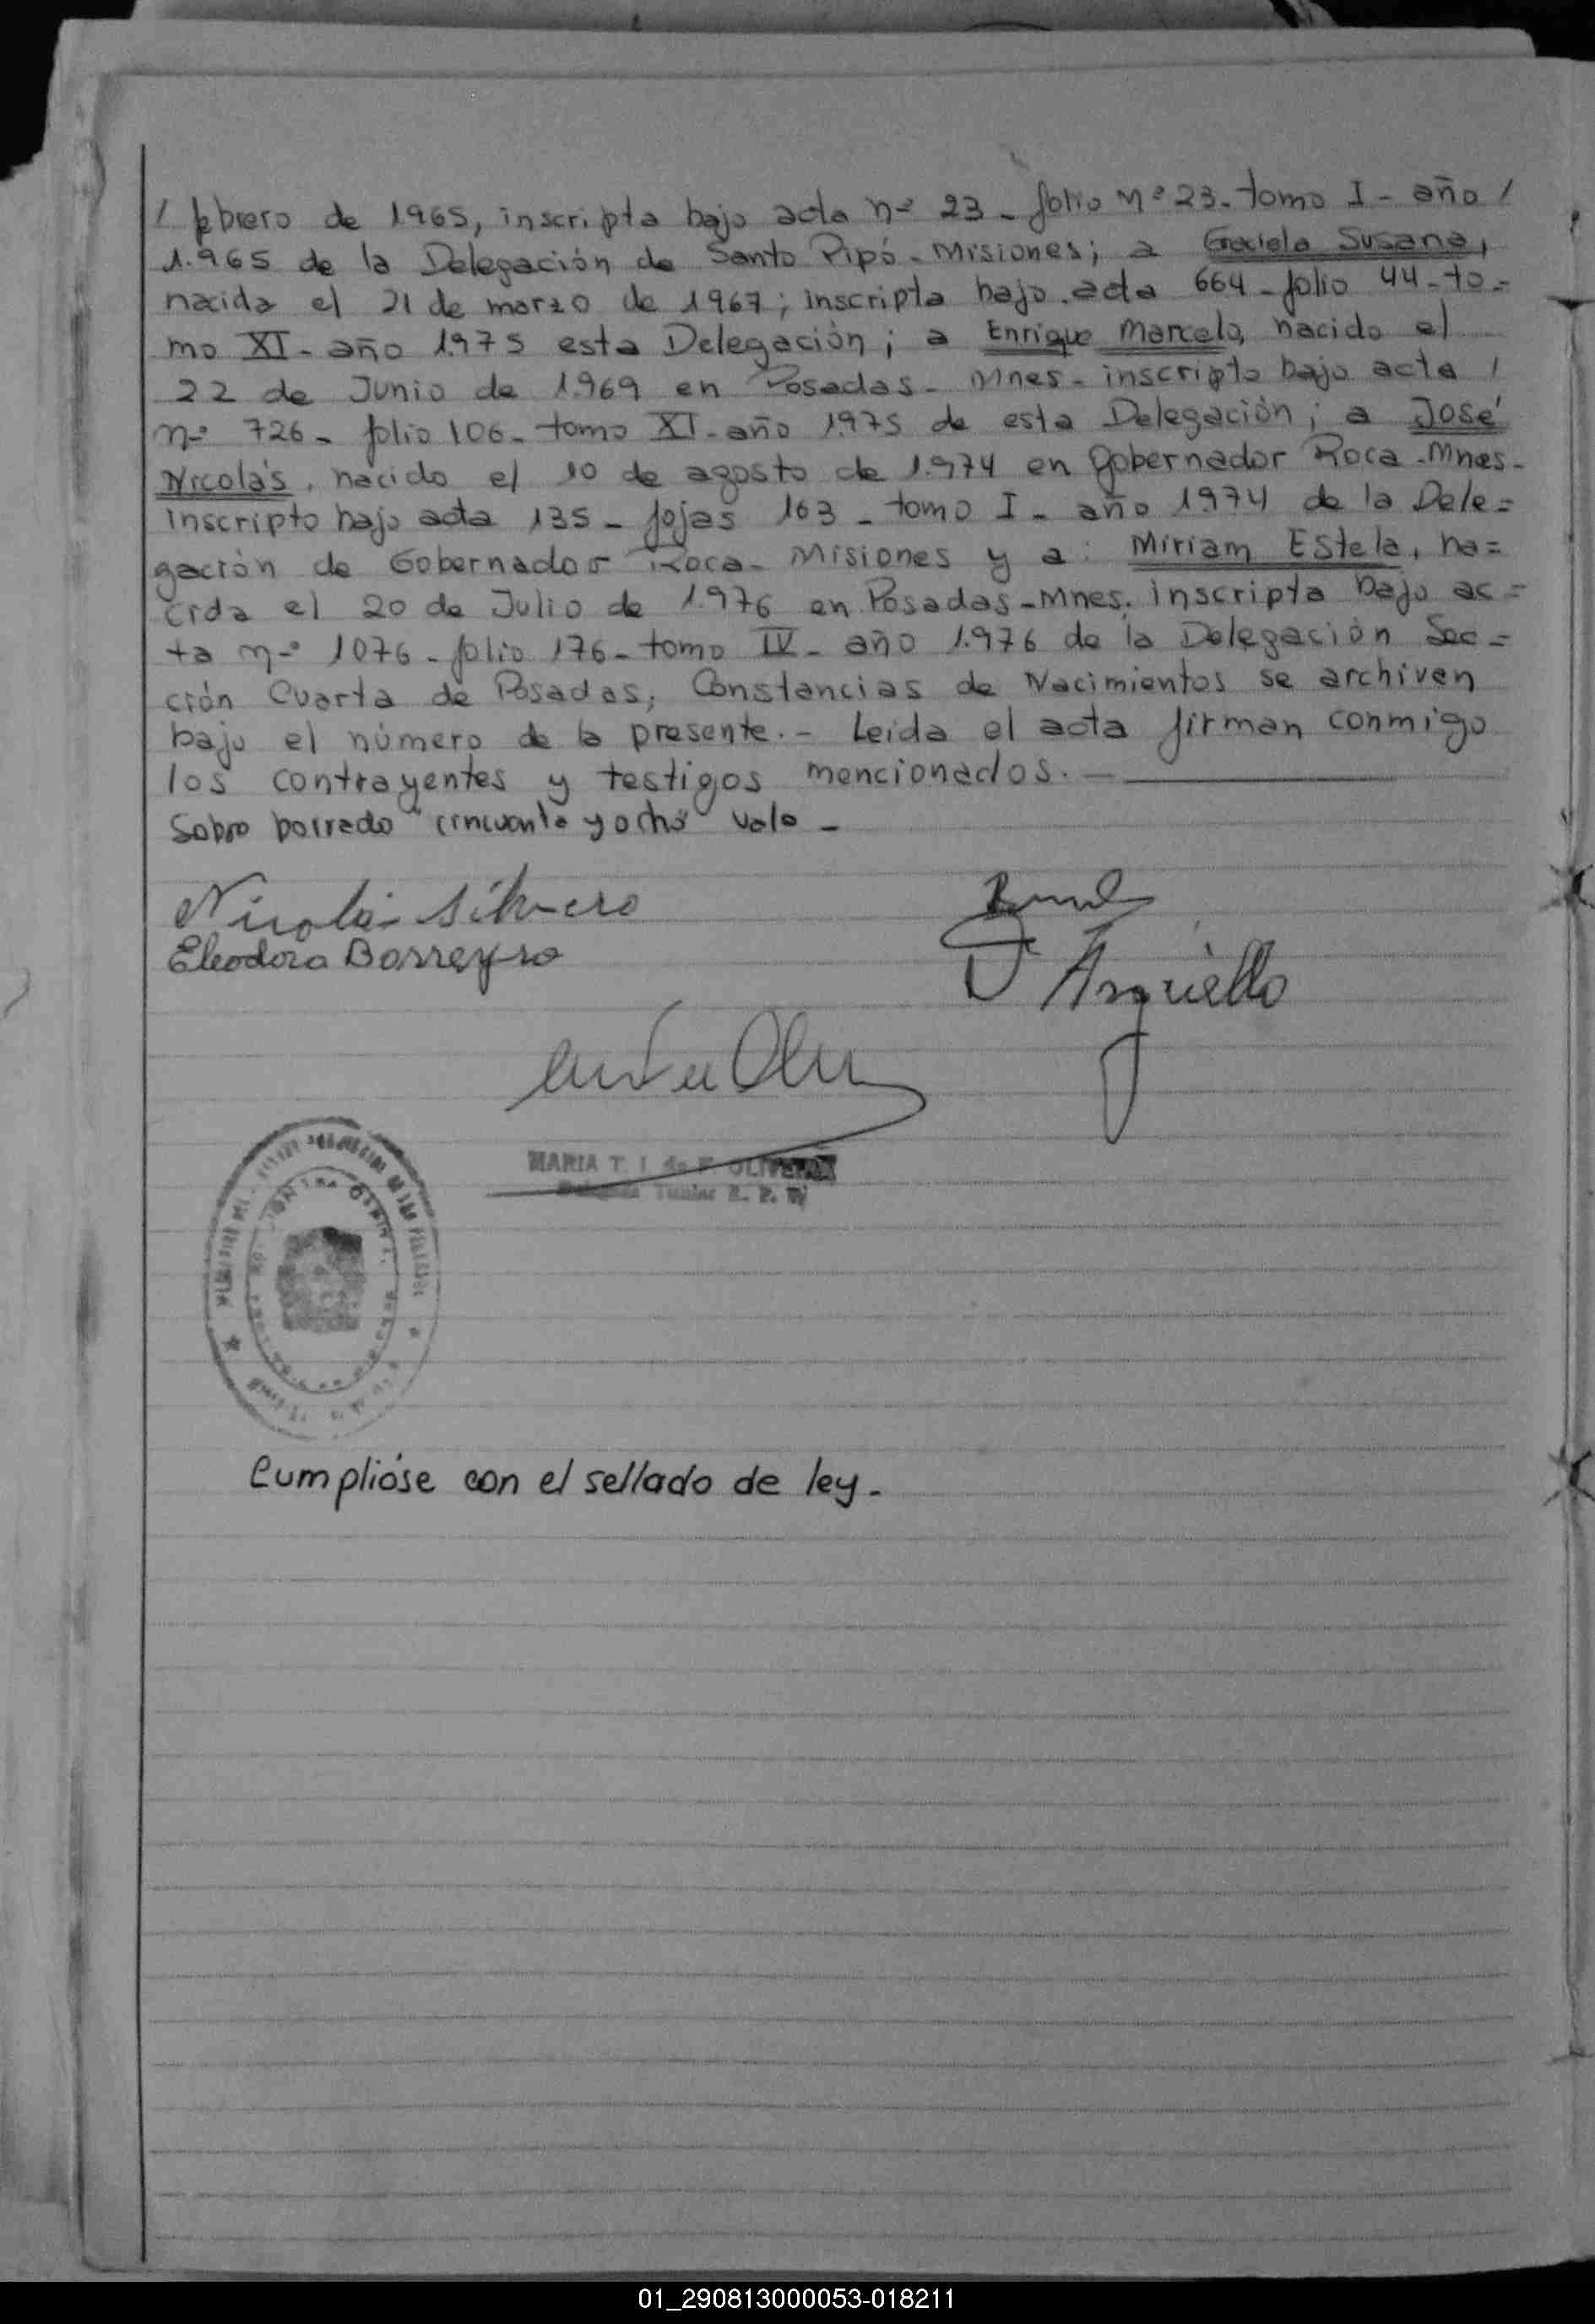 / febrero de 1965, inscripta bajo acta n-º 23 - folio Nº 23. tomo I - año /
1.965 de la Delegación de Santo Pipó - Misiones; a Graciela Susana,
nacida el 21 de marzo de 1967; inscripta bajo acta 664 - folio 44 - to=
mo XI - año 1.975 esta Delegación; a Enrique Marcelo, nacido el
22 de Junio de 1.969 en Posadas - Mnes - inscripto bajo acta /
n-º 726 - folio 106 - tomo XI - año 1975 de esta Delegación; a José
Nicolás, nacido el 10 de agosto de 1.974 en Gobernador Roca - Mnes -
inscripto bajo acta 135 - fojas 163 - tomo I - año 1974 de la Dele=
gación de Gobernador Roca - Misiones y a: Miriam Estela, na=
cida el 20 de Julio de 1.976 en Posadas - Mnes. inscripta bajo ac=
ta n-º 1076 - folio 176 - tomo IV - año 1.976 de la Delegación Sec=
ción Cuarta de Posadas; Constancias de Nacimientos se archiven
bajo el número de la presente. - Leída el acta firman conmigo
los contrayentes y testigos mencionados. -
Sobre borrado "cincuenta y ocho" vale -
Nicolás Silvero
Eleodora Borreyro
Arguello
MARIA T. I. de F. OLIVERA
Titular R. P.
Cumplióse con el sellado de ley.
01_290813000053-018211